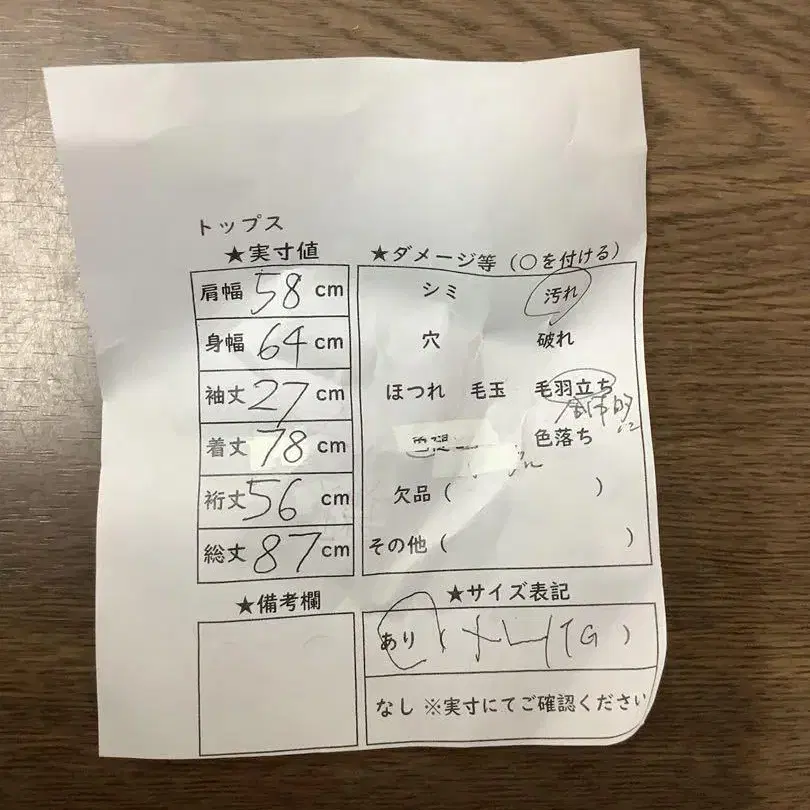 トップス
★実寸値
肩幅 58 cm
身幅 64 cm
袖丈 27 cm
着丈 78 cm
裄丈 56 cm
総丈 87 cm
★備考欄
★ダメージ等（○を付ける）
シミ 汚れ
穴 破れ
ほつれ 毛玉 毛羽立ち
全体的に
色落ち
欠品（ ）
その他（ ）
★サイズ表記
あり（ ）
なし ※実寸にてご確認ください